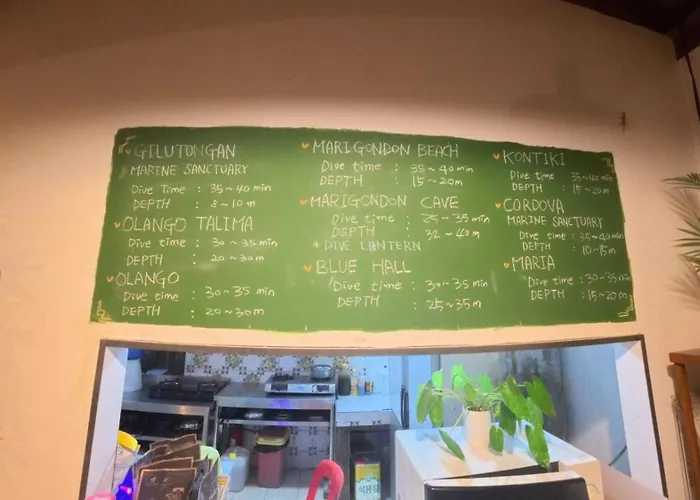 GILUTONGAN
MARINE SANCTUARY
Dive Time : 35~40 min
DEPTH : 8~10 m
OLANGO TALIMA
Dive time : 30~35 min
DEPTH : 20~30m
OLANGO
Dive time : 30~35 min
DEPTH : 20~30m
MARIGONDON BEACH
Dive time : 35~40 min
DEPTH : 15~20m
MARIGONDON CAVE
Dive time : 25~35 min
DEPTH : 32~40m
* DIVE LANTERN
BLUE HALL
Dive time : 30~35 min
DEPTH : 25~35m
KONTIKI
Dive time : 35~40 min
DEPTH : 15~20m
CORDOVA
MARINE SANCTUARY
Dive time : 35~40 min
DEPTH : 10~15m
MARIA
Dive time : 30~35 min
DEPTH : 15~20m